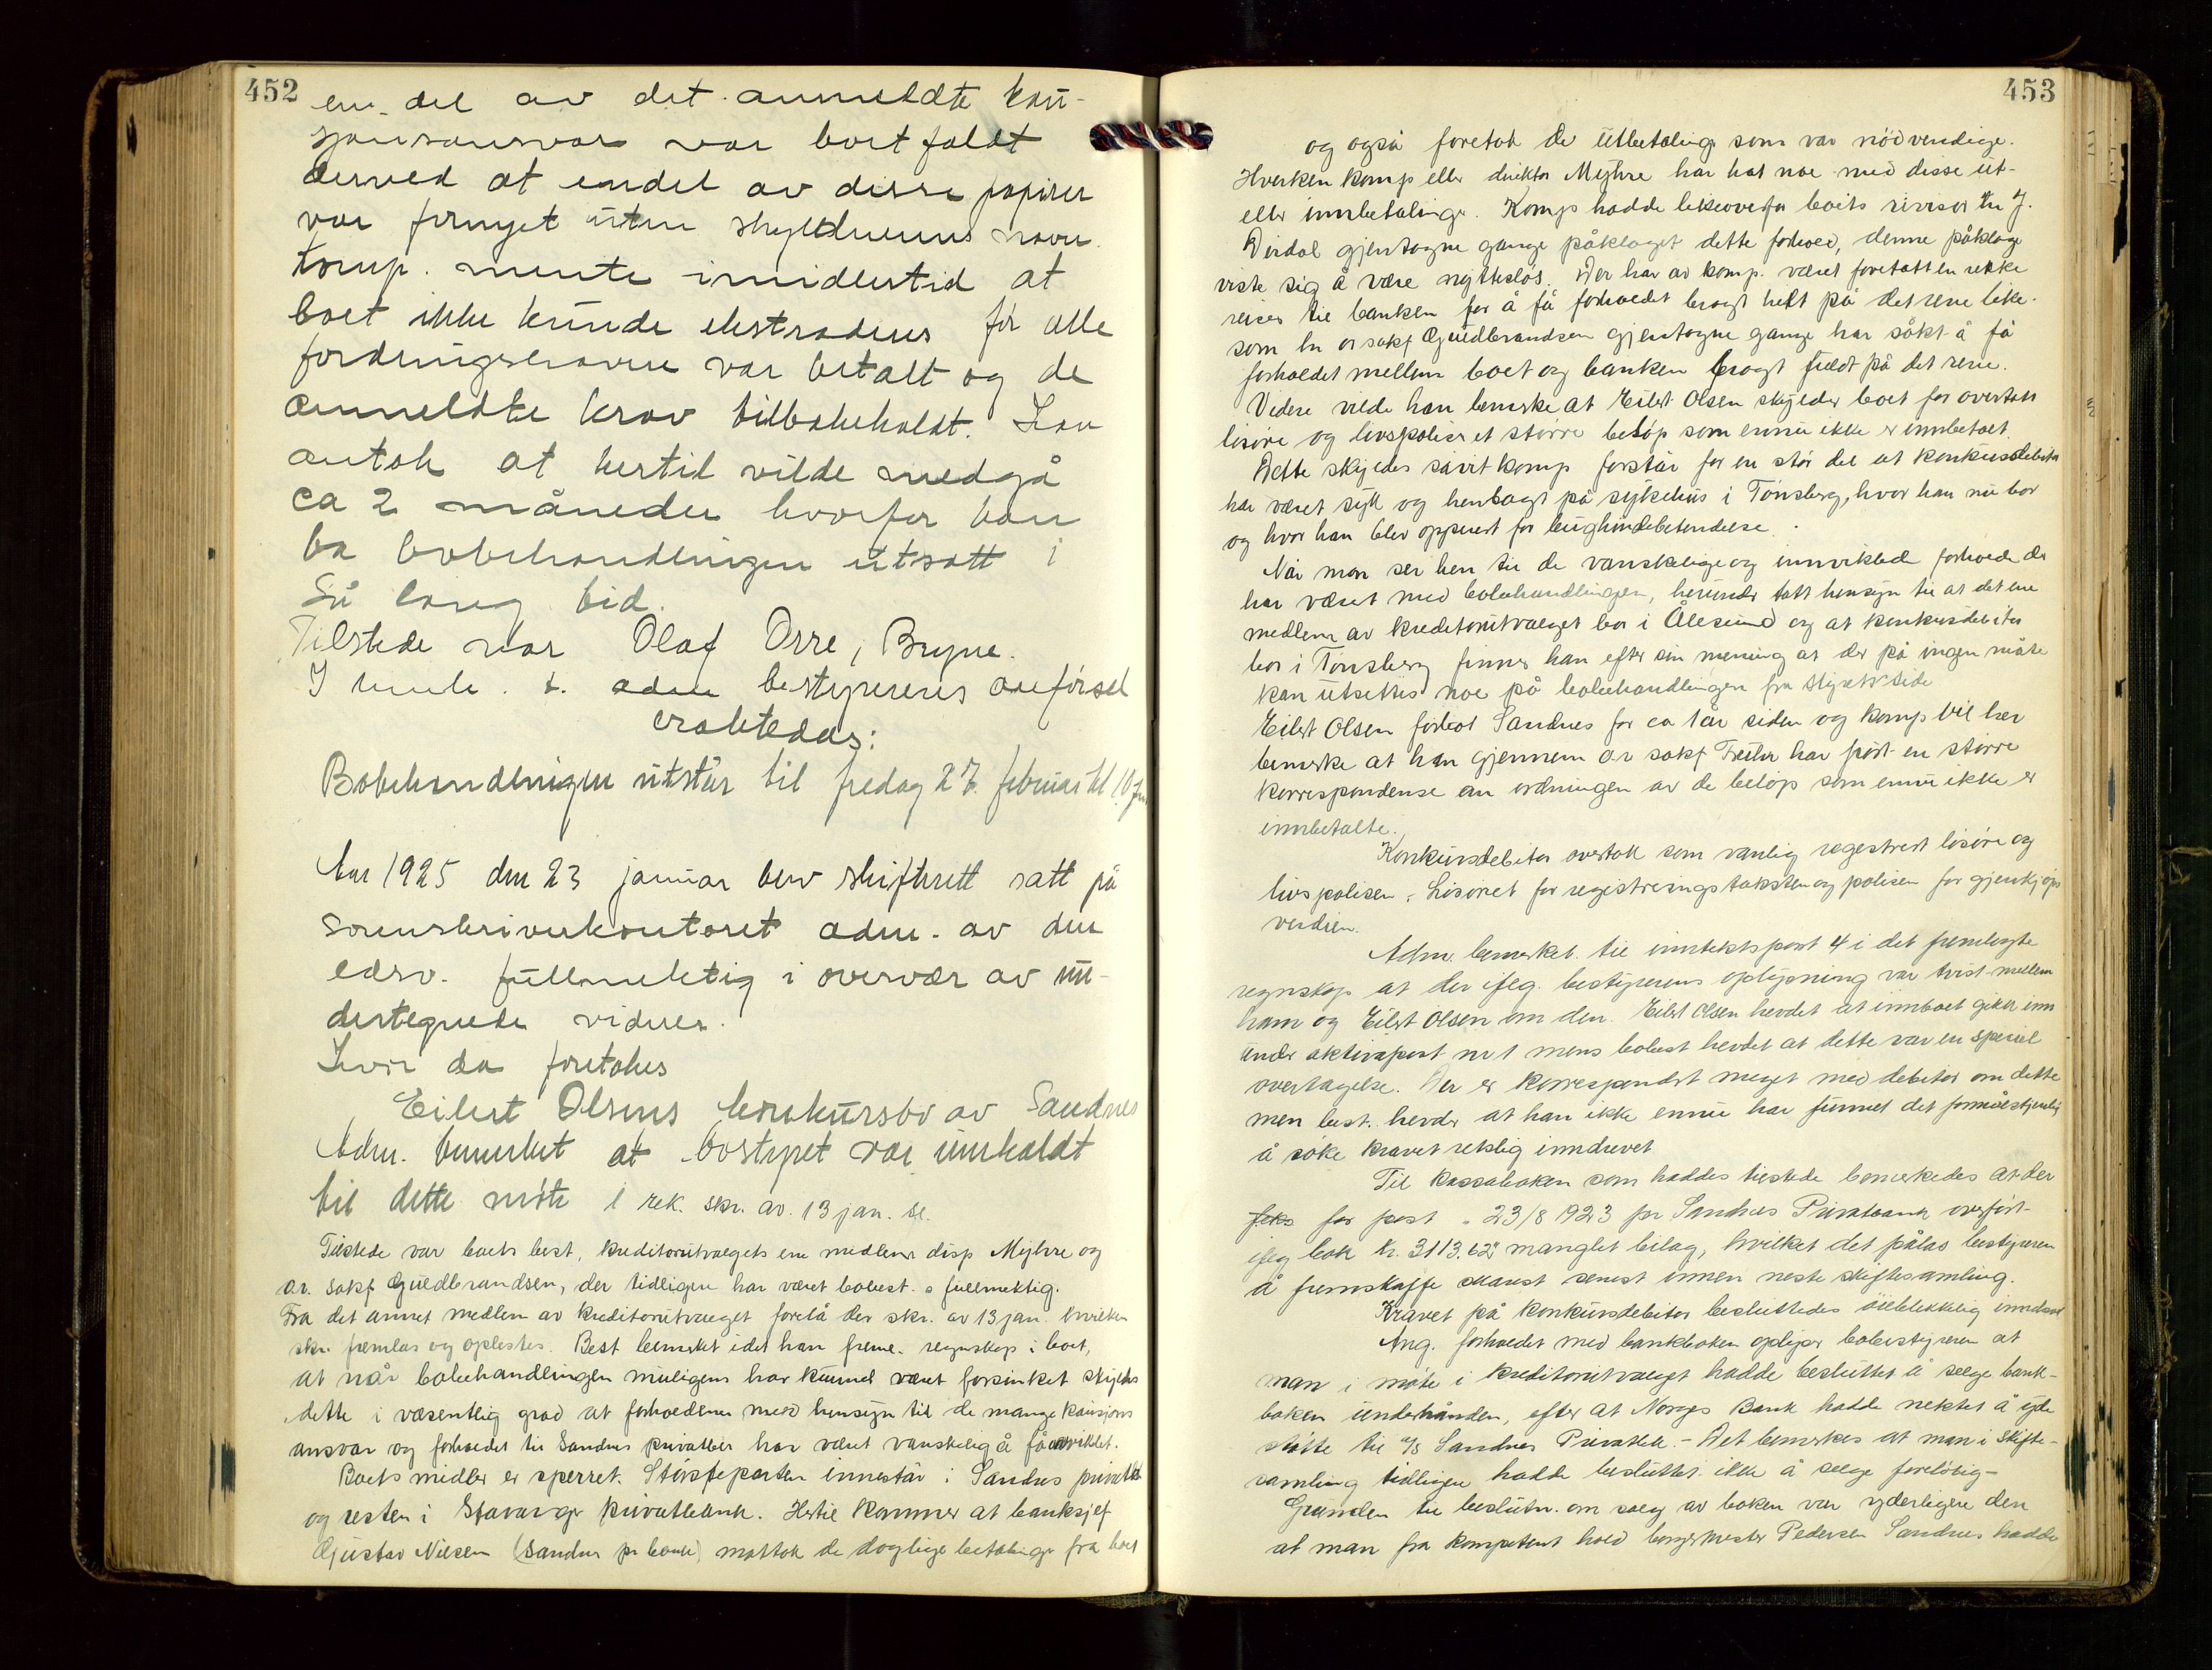 452
en del av det anmeldte kau-
sjonsansvar var bortfaldt
derved at endel av disse papirer
var fornyet uten skyldnerens navn.
Komp. mente imidlertid at
boet ikke kunde ekstraderes før alle
fordringshavere var betalt og de
anmeldte krav tilbakeholdt. Han
antok at hertil vilde medgå
ca 2 måneder hvorfor han
ba bobehandlingen utsatt i
så lang tid.
Tilstede var Olaf Orre, Bryne.
I henh. t. adm bestyrerens anførsel
eraktedes:
Bobehandlingen utstår til fredag 27. februar kl 10 fm
Aar 1925 den 23 januar blev skifterett satt på
sorenskriverkontoret adm. av den
edsv. fullmektig i overvær av un-
dertegnede vidner.
Hvor da foretokes
Eilert Olsens konkursbo av Sandnes
Adm. bemerket at bostyret var innkaldt
til dette møte i rek. skr. av 13 jan. sl.
Tilstede var boets best, kreditorutvalgets ene medlem disp Myhre og
o.r. sakf Guldbrandsen, der tidligere har været bobest. s fullmektig.
Fra det annet medlem av kreditorutvalget forelå der skr. av 13 jan. hvilken
skr. fremlas og oplestes. Best bemerket idet han freml. regnskap i boet,
at når bobehandlingen muligens har kunnet været forsinket skyldes
dette i væsentlig grad at forholdene med hensyn til de mange kausjons
ansvar og forholdet til Sandnes privatbk har været vanskelig å få avviklet.
Boets midler er sperret. Størsteparten innestår i Sandnes privatbk
og resten i Stavanger privatbank. Hertil kommer at banksjef
Gustav Nilsen (Sandnes pr bank) mottok de daglige betalinger fra boet
453
og også foretok de utbetalinger som var nødvendige.
Hverken komp eller direktør Myhre har hat noe med disse ut-
eller innbetalinger. Komp hadde likeoverfor boets revisor hr J.
Dirdal gjentagne gange påklaget dette forhold, denne påklage
viste sig å være nytteløs. Der har av komp. været foretatt en rekke
reiser til banken for å få forholdet bragt helt på det rene like-
som hr or sakf Guldbrandsen gjentagne gange har søkt å få
forholdet mellem boet og banken bragt fuldt på det rene.
Videre vilde han bemerke at Eilert Olsen skylder boet for overtatt
løsøre og livspoliser et større beløp som ennu ikke er innbetalt.
Dette skyldes såvit komp forstår for en stor del at konkursdebitor
har været syk og henlagt på sykehus i Tønsberg, hvor han nu bor
og hvor han blev operert for bughindebetendelse.
Når man ser hen til de vanskelige og innviklede forhold der
har været med bobehandlingen, herunder tatt hensyn til at det ene
medlem av kreditorutvalget bor i Ålesund og at konkursdebitor
bor i Tønsberg finner han efter sin mening at der på ingen måte
kan utsettes noe på bobehandlingen fra styrets side
Eilert Olsen forlot Sandnes for ca 1 år siden og komp vil her
bemerke at han gjennem o.r sakf har ført en større
korrespondense om ordningen av de beløp som ennu ikke er
innbetalte.
Konkursdebitor overtok som vanlig registrert løsøre og
livspolisen. Løsøret for registreringstaksten og polisen for gjenkjøps
verdien.
Adm. bemerket til inntektspost 4 i det fremlagte
regnskap at der iflg. bestyrerens oplysning var tvist mellem
ham og Eilert Olsen om den. Eilert Olsen hevdet at innboet gikk inn
under aktivapost nr 1 mens bobest hevdet at dette var en spesiel
overtagelse. Der er korrespondert meget med debitor om dette
men best. hevder at han ikke ennu har funnet det formålstjenlig
å søke kravet rettslig inndrevet
Til kassaboken som haddes tilstede bemerkedes at der
for post 23/8 1923 pr Sandnes Privatbank overført
iflg bok kr. 3113.62 manglet bilag, hvilket det pålas bestyreren
å fremskaffe senest innen neste skiftesamling.
Kravet på konkursdebitor besluttedes øieblikkelig inndrevet
Ang. forholdet med bankboken oplyser bobestyreren at
man i møte i kreditorutvalget hadde besluttet å selge bank-
boken underhånden, efter at Norges Bank hadde nektet å yde
støtte til A/S Sandnes Privatbk. - Det bemerkes at man i skifte-
samling tidligere hadde besluttet ikke å selge foreløbig -
Grunden til beslutn. om salg av boken var yderligere den
at man fra kompetent hold borgermester Pedersen Sandnes hadde